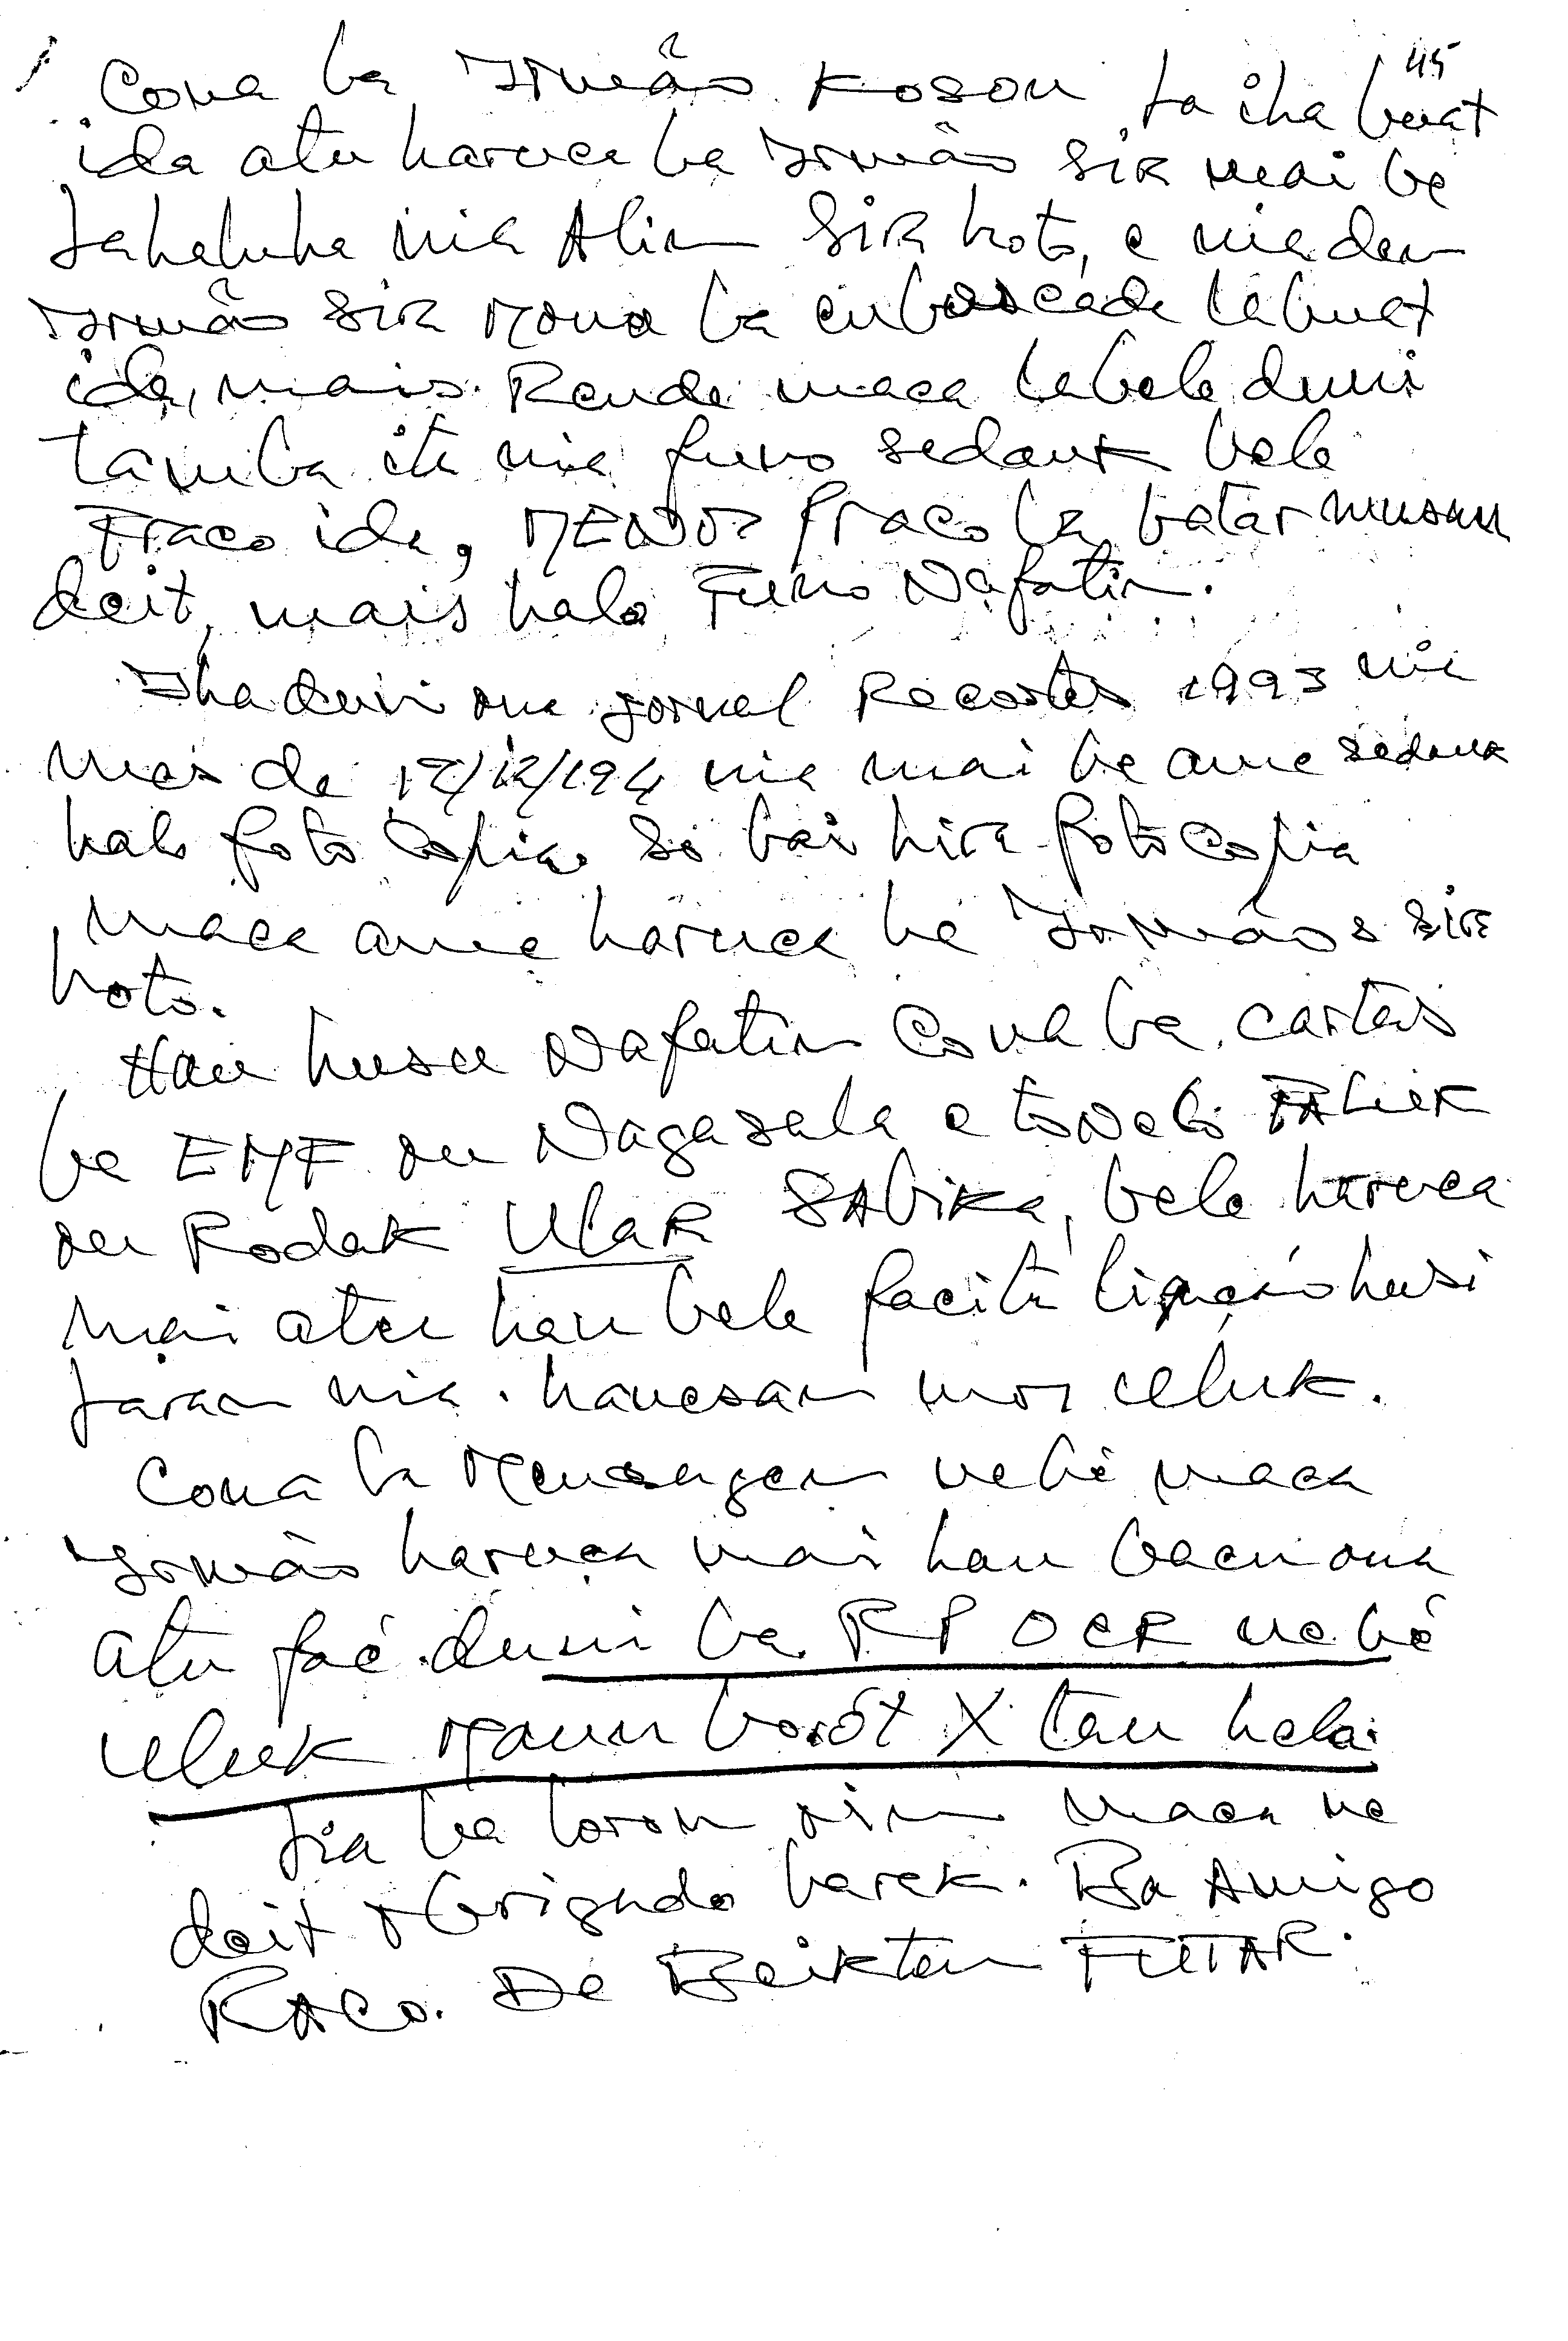 45
Cona ba Irmão Koson ta iha buat
ida atu haruca ba Irmão sira mai be
Jahaluha nia Alin sira hoto, e nia dan
Irmão sira Mona ba enboscada labuat
ida, mais. Rende maca labele duni
tamba ita nia funo sedauk bele
Fraco ida, MENOR fraco ba batar musan
deit, mais halo Funo Nafatin.
Iha duni ona jornal Recortes 1993 nia
mes de 12/12/194 nia mai be ame sedauk
halo foto Copia. So bai hira fotoCopia
maca ame haruca ba Irmãos sira
hoto.
Hau husu Nafatin Cona ba cartas
ba EMF ou Nagasala e to Nebé FALUK
ou Rodak Ular SAbika, bele haruca
mai atu hau bele facita ligação husi
Jaran nia. hanesan mos uluk.
Cona ba Mensagen nebé maca
Irmão haruca mai hau bacu ona
atu faé duni ba RP OCR nebé
uluk Maun boót X tau hela.
Jia ba loron oin maca ne
deit obrigado barak. Ba Amigo
RACO. De Beikten FUTAR.